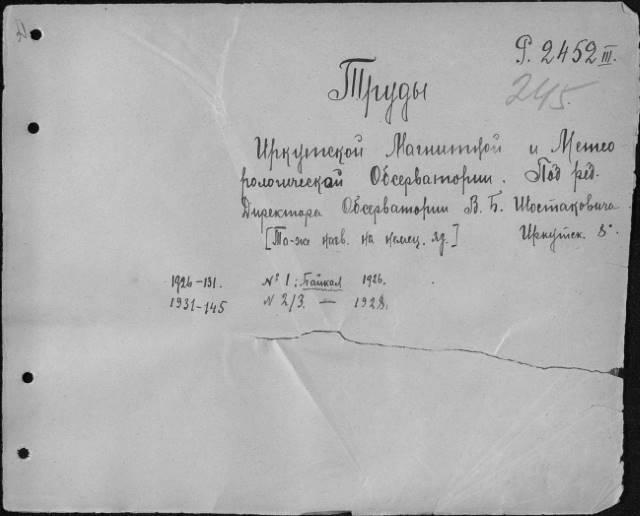 Р. 2452 III.
245.
Труды
Иркутской Магнитной и Метео
рологической Обсерватории. Под ред.
Директора Обсерватории В. Б. Шостаковича
[То-же назв. на немец. яз.] Иркутск. 8°.
1926-131. № 1: Байкал 1926.
1931-145 N 2/3. — 1928.